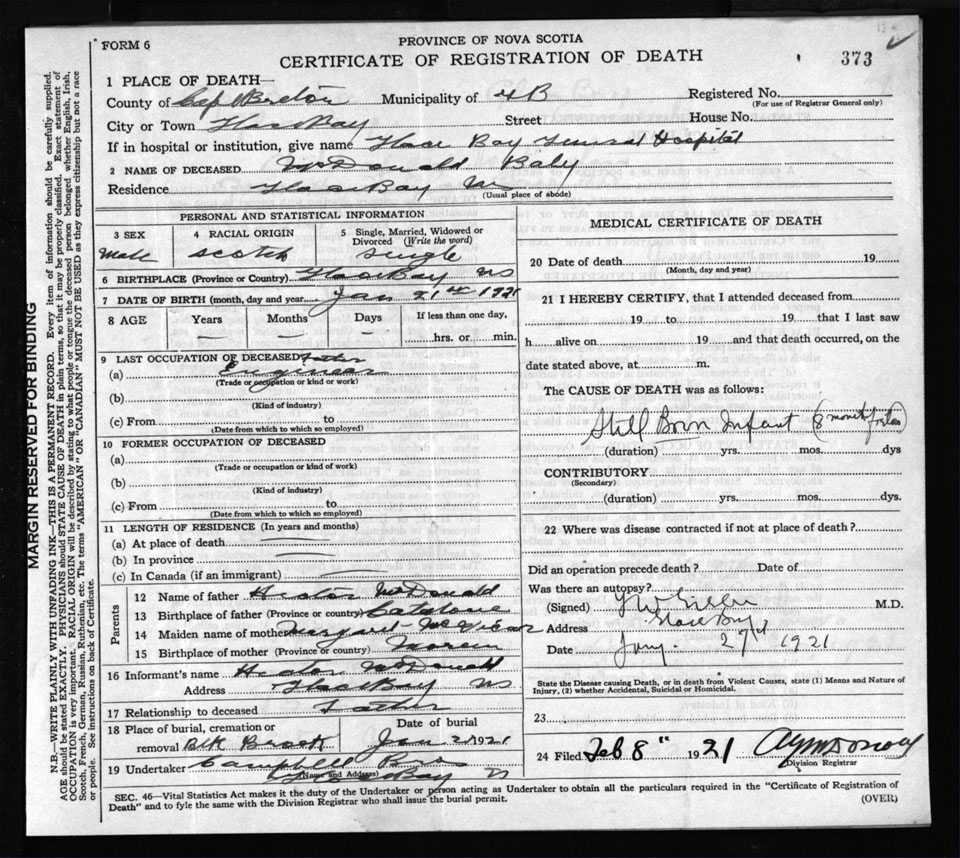 FORM 6
PROVINCE OF NOVA SCOTIA
CERTIFICATE OF REGISTRATION OF DEATH
373
1 PLACE OF DEATH—
County of Cape Breton Municipality of 4B Registered No.
(For use of Registrar General only)
City or Town Glace Bay Street House No.
If in hospital or institution, give name Glace Bay General Hospital
2 NAME OF DECEASED McDonald Baby
Residence Glace Bay NS
(Usual place of abode)
PERSONAL AND STATISTICAL INFORMATION
3 SEX 4 RACIAL ORIGIN 5 Single, Married, Widowed or Divorced (Write the word)
Male Scotch Single
6 BIRTHPLACE (Province or Country) Glace Bay NS
7 DATE OF BIRTH (month, day and year) Jan 21st 1921
8 AGE Years Months Days If less than one day,
— — — hrs. or min.
9 LAST OCCUPATION OF DECEASED Father
(a) Engineer
(Trade or occupation or kind or work)
(b)
(Kind of industry)
(c) From to
(Date from which to which so employed)
10 FORMER OCCUPATION OF DECEASED
(a)
(Trade or occupation or kind of work)
(b)
(Kind of industry)
(c) From to
(Date from which to which so employed)
11 LENGTH OF RESIDENCE (In years and months)
(a) At place of death
(b) In province
(c) In Canada (if an immigrant)
Parents
12 Name of father Hector McDonald
13 Birthplace of father (Province or country) Catalone
14 Maiden name of mother Margaret McVicar
15 Birthplace of mother (Province or country)
16 Informant's name Hector McDonald
Address Glace Bay NS
17 Relationship to deceased Father
18 Place of burial, cremation or removal Blk Brook Date of burial Jan 2 1921
19 Undertaker Campbell Bros
Glace Bay NS
(Name and Address)
MEDICAL CERTIFICATE OF DEATH
20 Date of death 19
(Month, day and year)
21 I HEREBY CERTIFY, that I attended deceased from
19 to 19 that I last saw
h alive on 19 and that death occurred, on the
date stated above, at m.
The CAUSE OF DEATH was as follows:
Still Born Infant (8 months
(duration) yrs. mos. dys
CONTRIBUTORY
(Secondary)
(duration) yrs. mos. dys.
22 Where was disease contracted if not at place of death?
Did an operation precede death? Date of
Was there an autopsy?
(Signed) M.D.
Address Glace Bay
Date Jany. 27th 1921
State the Disease causing Death, or in death from Violent Causes, state (1) Means and Nature of Injury, (2) whether Accidental, Suicidal or Homicidal.
23
24 Filed Feb 8" 1921
Division Registrar
SEC. 46—Vital Statistics Act makes it the duty of the Undertaker or person acting as Undertaker to obtain all the particulars required in the "Certificate of Registration of
Death" and to fyle the same with the Division Registrar who shall issue the burial permit.
(OVER)
MARGIN RESERVED FOR BINDING
N.B.—WRITE PLAINLY WITH UNFADING INK—THIS IS A PERMANENT RECORD. Every item of information should be carefully supplied.
AGE should be stated EXACTLY. PHYSICIANS should STATE CAUSE OF DEATH in plain terms, so that it may be properly classified. Exact statement of
OCCUPATION is very important. RACIAL ORIGIN will be described by stating to what people or tongue the deceased person belonged, whether English, Irish,
Scotch, French, German, Russian, Ruthenian, etc. The terms "AMERICAN" OR "CANADIAN" MUST NOT BE USED as they express citizenship but not a race
or people. See instructions on back of Certificate.